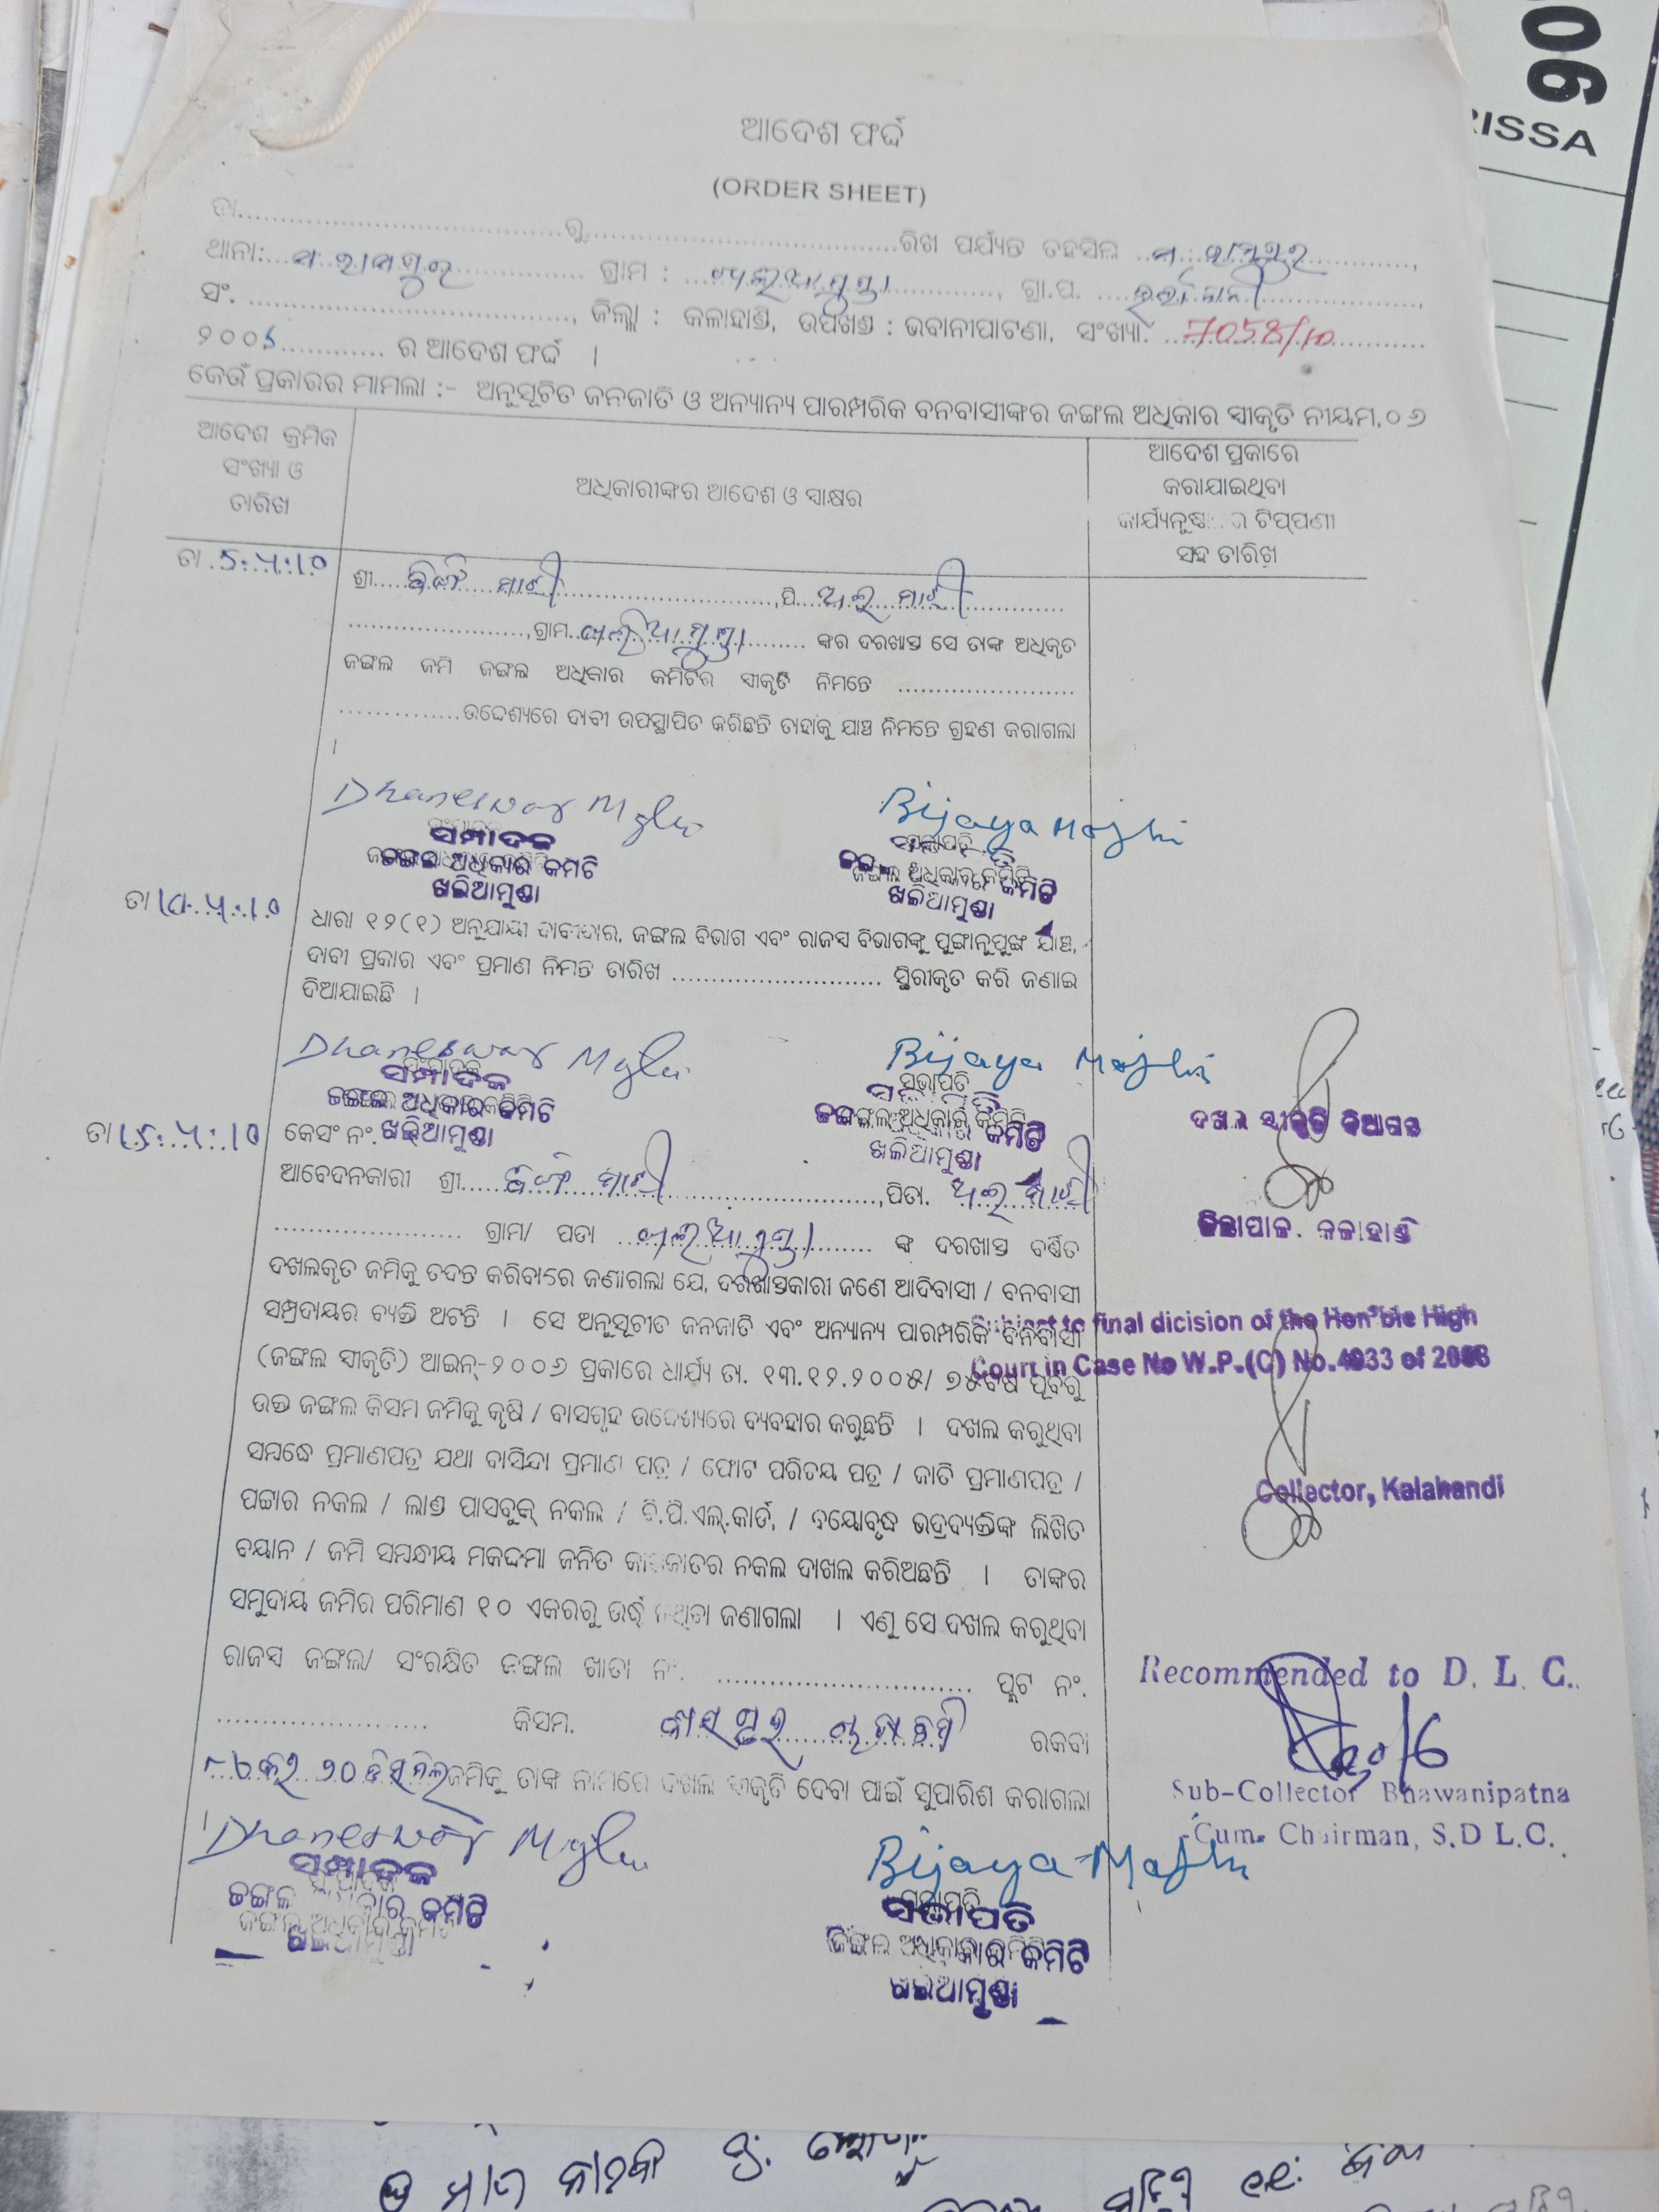 ଆଦେଶ ଫର୍ଦ୍ଦ
(ORDER SHEET)
90
RISSA
ତା.......................ରୁ.......................ରିଖ ପର୍ଯ୍ୟନ୍ତ ତହସିଲ ମ. ରାମପୁର,
ଥାନା: ମ. ରାମପୁର ଗ୍ରାମ : ଖଲିଆମୁଣ୍ଡା, ଗ୍ରା.ପ.
ସଂ. ......................., ଜିଲ୍ଲା : କଳାହାଣ୍ଡି, ଉପଖଣ୍ଡ : ଭବାନୀପାଟଣା, ସଂଖ୍ୟା. 7058/10
୨୦୦ ............ ର ଆଦେଶ ଫର୍ଦ୍ଦ ।
କେଉଁ ପ୍ରକାରର ମାମଲା :- ଅନୁସୂଚିତ ଜନଜାତି ଓ ଅନ୍ୟାନ୍ୟ ପାରମ୍ପରିକ ବନବାସୀଙ୍କର ଜଙ୍ଗଲ ଅଧିକାର ସ୍ୱୀକୃତି ନୀୟମ.୦୬
ଆଦେଶ କ୍ରମିକ
ସଂଖ୍ୟା ଓ
ତାରିଖ
ଅଧିକାରୀଙ୍କର ଆଦେଶ ଓ ସ୍ୱାକ୍ଷର
ଆଦେଶ ପ୍ରକାରେ
କରାଯାଇଥିବା
ଟିପ୍ପଣୀ
ସହ ତାରିଖ
ତା. 5.4.10
ଶ୍ରୀ..... ମାଝୀ ..........,ପି. ମାଝୀ
.......................,ଗ୍ରାମ. ଖଲିଆମୁଣ୍ଡା ଙ୍କର ଦରଖାସ୍ତ ସେ ତାଙ୍କ ଅଧିକୃତ
ଜଙ୍ଗଲ ଜମି ଜଙ୍ଗଲ ଅଧିକାର କମିଟିର ସ୍ୱୀକୃତି ନିମନ୍ତେ .......................
...............ଉଦ୍ଦେଶ୍ୟରେ ଦାବୀ ଉପସ୍ଥାପିତ କରିଛନ୍ତି ତାହାକୁ ଯାଞ୍ଚ ନିମନ୍ତେ ଗ୍ରହଣ କରାଗଲା
।
Dhaneswar Majhi Bijaya Majhi
ସମ୍ପାଦକ ସଭାପତି
ଜଙ୍ଗଲ ଅଧିକାର କମିଟି ଜଙ୍ଗଲ ଅଧିକାର କମିଟି
ଖଲିଆମୁଣ୍ଡା ଖଲିଆମୁଣ୍ଡା
ତା 10.4.10
ଧାରା ୧୨(୧) ଅନୁଯାୟୀ ଦାବୀଦାର, ଜଙ୍ଗଲ ବିଭାଗ ଏବଂ ରାଜସ୍ୱ ବିଭାଗଙ୍କୁ ପୁଙ୍ଖାନୁପୁଙ୍ଖ ଯାଞ୍ଚ,
ଦାବୀ ପ୍ରକାର ଏବଂ ପ୍ରମାଣ ନିମନ୍ତେ ତାରିଖ ....................... ସ୍ଥିରୀକୃତ କରି ଜଣାଇ
ଦିଆଯାଇଛି ।
Dhaneswar Majhi Bijaya Majhi
ସମ୍ପାଦକ ସଭାପତି
ଜଙ୍ଗଲ ଅଧିକାର କମିଟି ଜଙ୍ଗଲ ଅଧିକାର କମିଟି
ଖଲିଆମୁଣ୍ଡା ଖଲିଆମୁଣ୍ଡା
ଦଖଲ ସ୍ୱୀକୃତି ଦିଆଗଲା
ଜିଲ୍ଲାପାଳ. କଳାହାଣ୍ଡି
ତା 15.4.10
କେସଂ ନଂ.
ଆବେଦନକାରୀ ଶ୍ରୀ..... ମାଝୀ ..........,ପିତା. ମାଝୀ
....................... ଗ୍ରାମ/ ପଡା ଖଲିଆମୁଣ୍ଡା ଙ୍କ ଦରଖାସ୍ତ ବର୍ଣିତ
ଦଖଲକୃତ ଜମିକୁ ତଦନ୍ତ କରିବାରେ ଜଣାଗଲା ଯେ, ଦରଖାସ୍ତକାରୀ ଜଣେ ଆଦିବାସୀ / ବନବାସୀ
ସମ୍ପ୍ରଦାୟର ବ୍ୟକ୍ତି ଅଟନ୍ତି । ସେ ଅନୁସୂଚୀତ ଜନଜାତି ଏବଂ ଅନ୍ୟାନ୍ୟ ପାରମ୍ପରିକ ବନବାସୀ
(ଜଙ୍ଗଲ ସ୍ୱୀକୃତି) ଆଇନ୍-୨୦୦୬ ପ୍ରକାରେ ଧାର୍ଯ୍ୟ ତା. ୧୩.୧୨.୨୦୦୫/ ୭୫ବର୍ଷ ପୂର୍ବରୁ
ଉକ୍ତ ଜଙ୍ଗଲ କିସମ ଜମିକୁ କୃଷି / ବାସଗୃହ ଉଦ୍ଦେଶ୍ୟରେ ବ୍ୟବହାର କରୁଛନ୍ତି । ଦଖଲ କରୁଥିବା
ସମ୍ବନ୍ଧେ ପ୍ରମାଣପତ୍ର ଯଥା ବାସିନ୍ଦା ପ୍ରମାଣ ପତ୍ର / ଫୋଟ ପରିଚୟ ପତ୍ର / ଜାତି ପ୍ରମାଣପତ୍ର /
ପଟ୍ଟାର ନକଲ / ଲାଣ୍ଡ ପାସବୁକ୍ ନକଲ / ବି.ପି.ଏଲ୍.କାର୍ଡ, / ବୟୋବୃଦ୍ଧ ଭଦ୍ରବ୍ୟକ୍ତିଙ୍କ ଲିଖିତ
ବୟାନ / ଜମି ସମ୍ବନ୍ଧୀୟ ମକଦ୍ଦମା ଜନିତ କାଗଜାତର ନକଲ ଦାଖଲ କରିଅଛନ୍ତି । ତାଙ୍କର
ସମୁଦାୟ ଜମିର ପରିମାଣ ୧୦ ଏକରରୁ ଉର୍ଦ୍ଧ୍ୱ ନଥିବା ଜଣାଗଲା । ଏଣୁ ସେ ଦଖଲ କରୁଥିବା
ରାଜସ୍ୱ ଜଙ୍ଗଲ/ ସଂରକ୍ଷିତ ଜଙ୍ଗଲ ଖାତା ନଂ. ....................... ପ୍ଲଟ ନଂ.
....................... କିସମ. ରକବା
ଜମିକୁ ତାଙ୍କ ନାମରେ ଦଖଲ ସ୍ୱୀକୃତି ଦେବା ପାଇଁ ସୁପାରିଶ କରାଗଲା
।
Subject to final dicision of the Hon'ble High
Court in Case No W.P.(C) No.4933 of 2008
Collector, Kalahandi
Recommended to D. L. C.
Sub-Collector Bhawanipatna
Cum. Chairman, S.D L.C.
Dhaneswar Majhi Bijaya Majhi
ସମ୍ପାଦକ ସଭାପତି
ଜଙ୍ଗଲ ଅଧିକାର କମିଟି ଜଙ୍ଗଲ ଅଧିକାର କମିଟି
ଖଲିଆମୁଣ୍ଡା ଖଲିଆମୁଣ୍ଡା